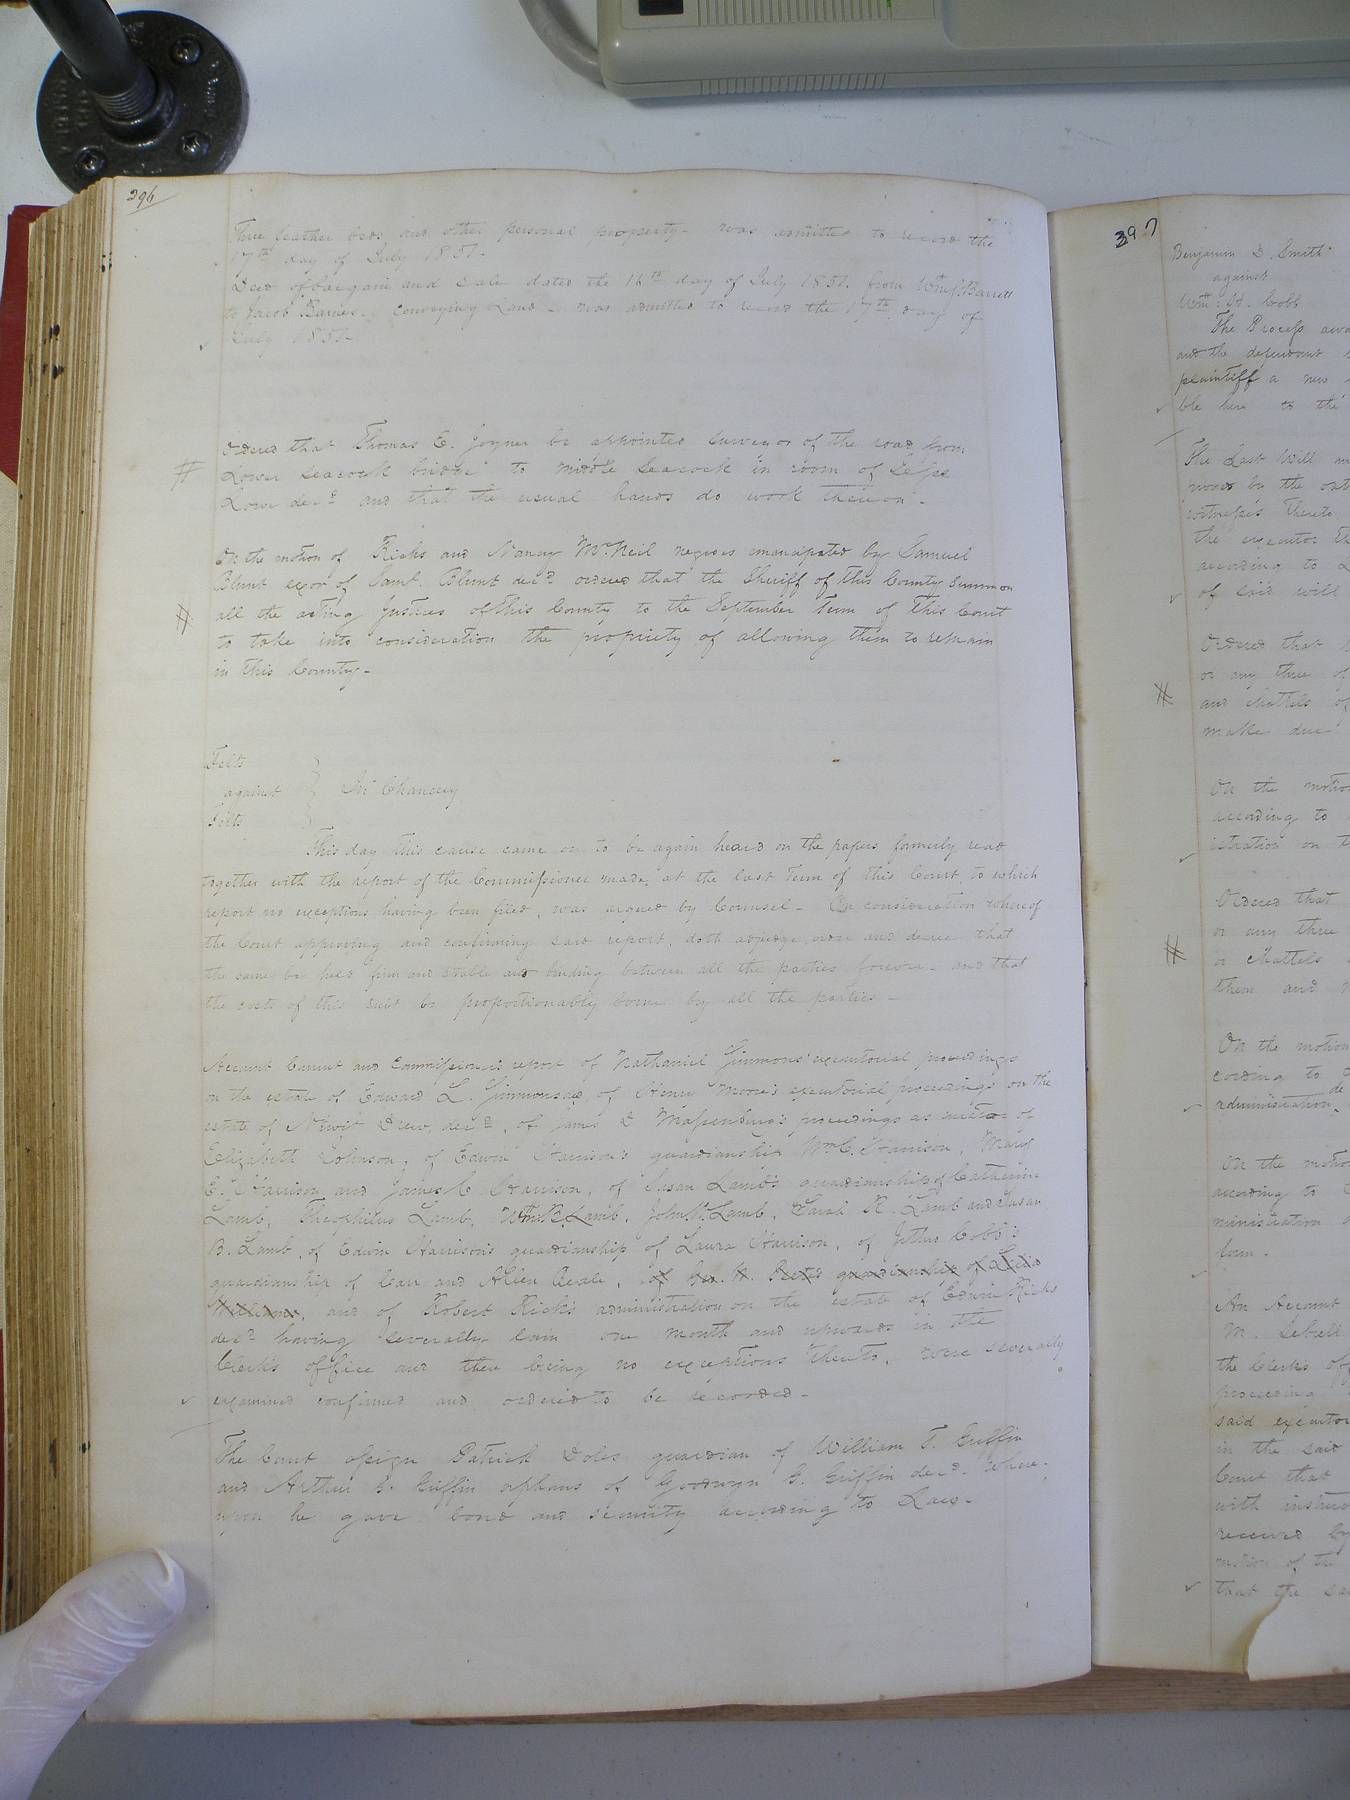 296
Three feather beds and other personal property - was admitted to record the
17th day of July 1851.
Deed of bargain and sale dated the 16th day of July 1851. from Wm J. Barrett
to Jacob Barnes. conveying Land - was admitted to record the 17th day of
July 1851.
Ordered that Thomas E. Joyner be appointed Surveyor of the road from
Lower Seacock bridge to Middle Seacock in room of Jesse
Lowe decd and that the usual hands do work thereon.
On the motion of Ricks and Nancy McNeil negroes emancipated by Samuel
Blunt exor of Saml. Blunt decd ordered that the Sheriff of this County summon
all the acting Justices of this County to the September Term of this Court
to take into consideration the propriety of allowing them to remain
in this County.
Felts
against } In Chancery
Felts
This day this cause came on to be again heard on the papers formerly read
together with the report of the Commissioner made, at the last Term of this Court, to which
report no exceptions having been filed, was argued by Counsel - On consideration whereof
the Court approving and confirming said report, doth adjudge, order and decree that
the same be held firm and stable and binding between all the parties forever - and that
the costs of this suit be proportionably borne by all the parties -
Account Current and Commissioners report of Nathaniel Simmons' executorial proceedings
on the estate of Edward L. Simmons decd, of Henry Moore's executorial proceedings on the
estate of Newit Drew, decd, of James D Massenburg's proceedings as curator of
Elizabeth Johnson, of Edwin Harrison's guardianship Wm C. Harrison, Mary
E. Harrison and James C Harrison, of Susan Lamb's guardianship of Catherine
Lamb, Theophilus Lamb, Wm B. Lamb, John W. Lamb, Sarah R. Lamb and Susan
B. Lamb, of Edwin Harrison's guardianship of Laura Harrison, of Jethro Cobb's
guardianship of Carr and Allen Beale, of Geo. W. guardianship of
Williams, and of Robert Ricks's administration on the estate of Edwin Ricks
decd having severally lain one month and upwards in the
Clerk's office and there being no exceptions thereto, were severally
examined confirmed and ordered to be recorded -
The Court assign Patrick Doles guardian of William T. Griffin
and Arthur G. Griffin orphans of Goodwyn G. Griffin decd. where-
upon he gave bond and security according to Law.
397
Benjamin D. Smith
against
Wm H. Cobb
The Process awa
and the defendant
plaintiff a new
ble here to the
The Last Will
proved by the oat
witnesses thereto
the executor th
according to
of said will
Ordered that
or any three of
and chattels of
make due
On the motion
according to
istration on t
Ordered that
or any three
or chattels
them and
On the motion
cording to
administration de
On the motion
according to
ministration
form.
An Account
M. Sebrell
the Clerks off
proceeding
said executor
in the said
Court that
with instruc
received by
motion of the
that the sa